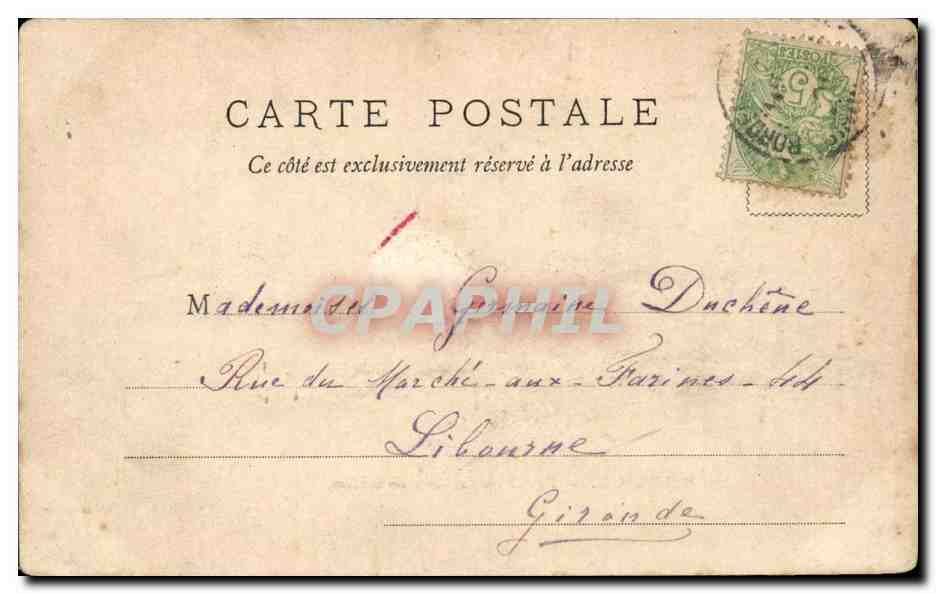 CARTE POSTALE
Ce côté est exclusivement réservé à l'adresse
POSTES
5
Mademoisel Germaine Duchêne
CPAPHIL
Rue du Marché-aux-Farines-44
Libourne
Gironde